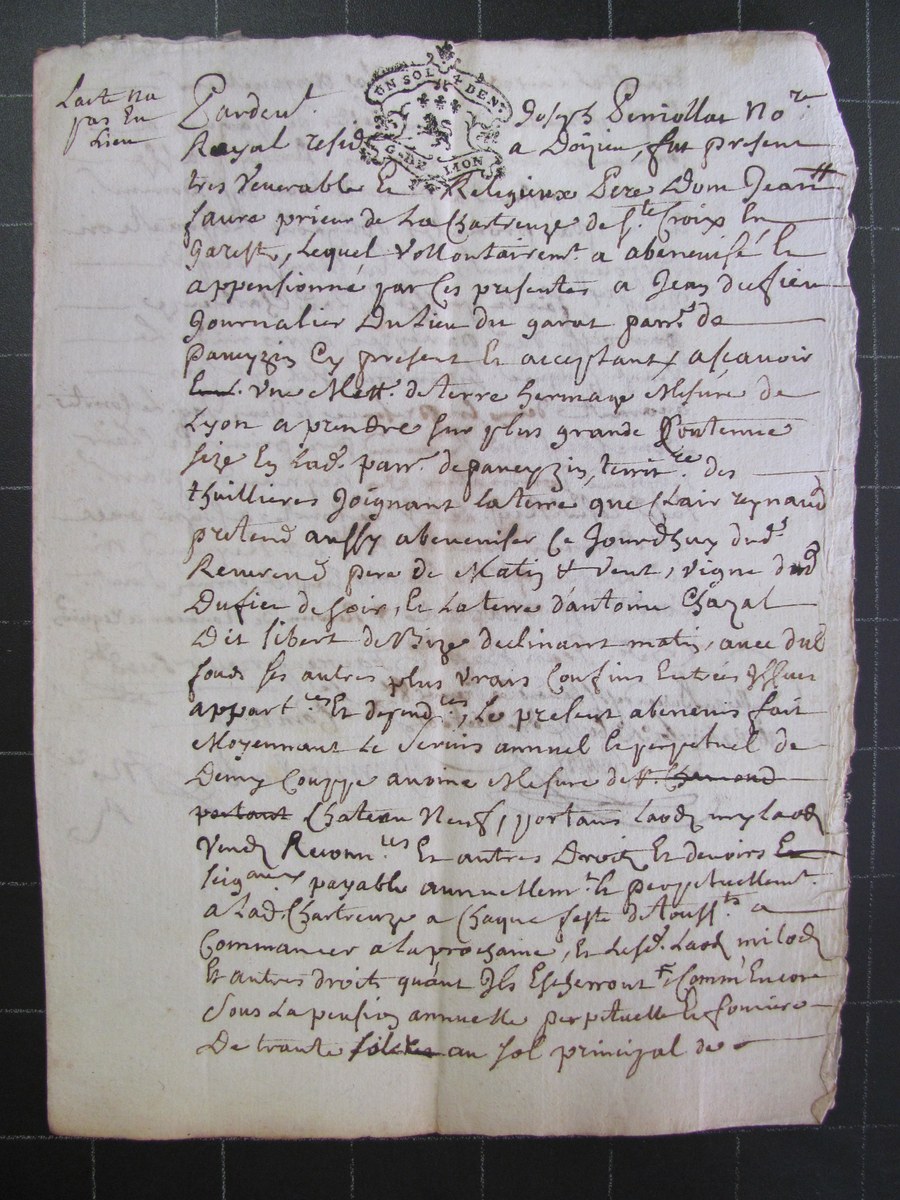 Lacte na
pas Eu
Lieu
UN SOL 4 DEN.
G. DE LION
Pardevt. Joseph Perriollat No.re
Royal resid. a Doizieu, fut present
tres Venerable Et Religieux Pere Dom Jean
faure prieur de La Chartreuze de Ste. Croix En
Garest, Lequel Vollontairemt. a abenevisé Et
appensionné par Ces presentes a Jean dufieu
Journalier Du Lieu du garat parr. de
paveyzin Cy present Et acceptant ascavoir
Une Mett. de terre hermage Mesure de
Lyon a prendre sur plus grande Contenue
size En Lad. parr. de paveyzin, territ.re des
thuillieres Joignant La terre que Clair reynaud
pretend aussy abeneviser Ce Jourdhuy dud.
Reverend pere de Matin & Vent, Vigne dud.
Dufieu de soir, Et La terre d'antoine Chazal
Dit libert de Bize declinant matin, avec dud.
fond ses autres plus Vrais Confins Entrées Issues
appart.ces Et depend.ces, Le present abenevis fait
Moyennant Le Servis annuel Et perpetuel de
Demy Couppe avoine Mesure de St. Chamond
portant Chateau Neuf, portans Laodz my Laodz
Vendz Reconn.ces Et autres Droitz Et devoirs
seigaux payable annuellemt. Et perpetuellemt.
a Lad. Chartreuze a Chaque feste de Touss.ts a
Commancer a La prochaine, Et Lesd. Laodz milodz
Et autres droits quant Ils Escherront, Comm'Encore
Sous La pension annuelle perpetuelle Et fonciere
De trante au sol principal de